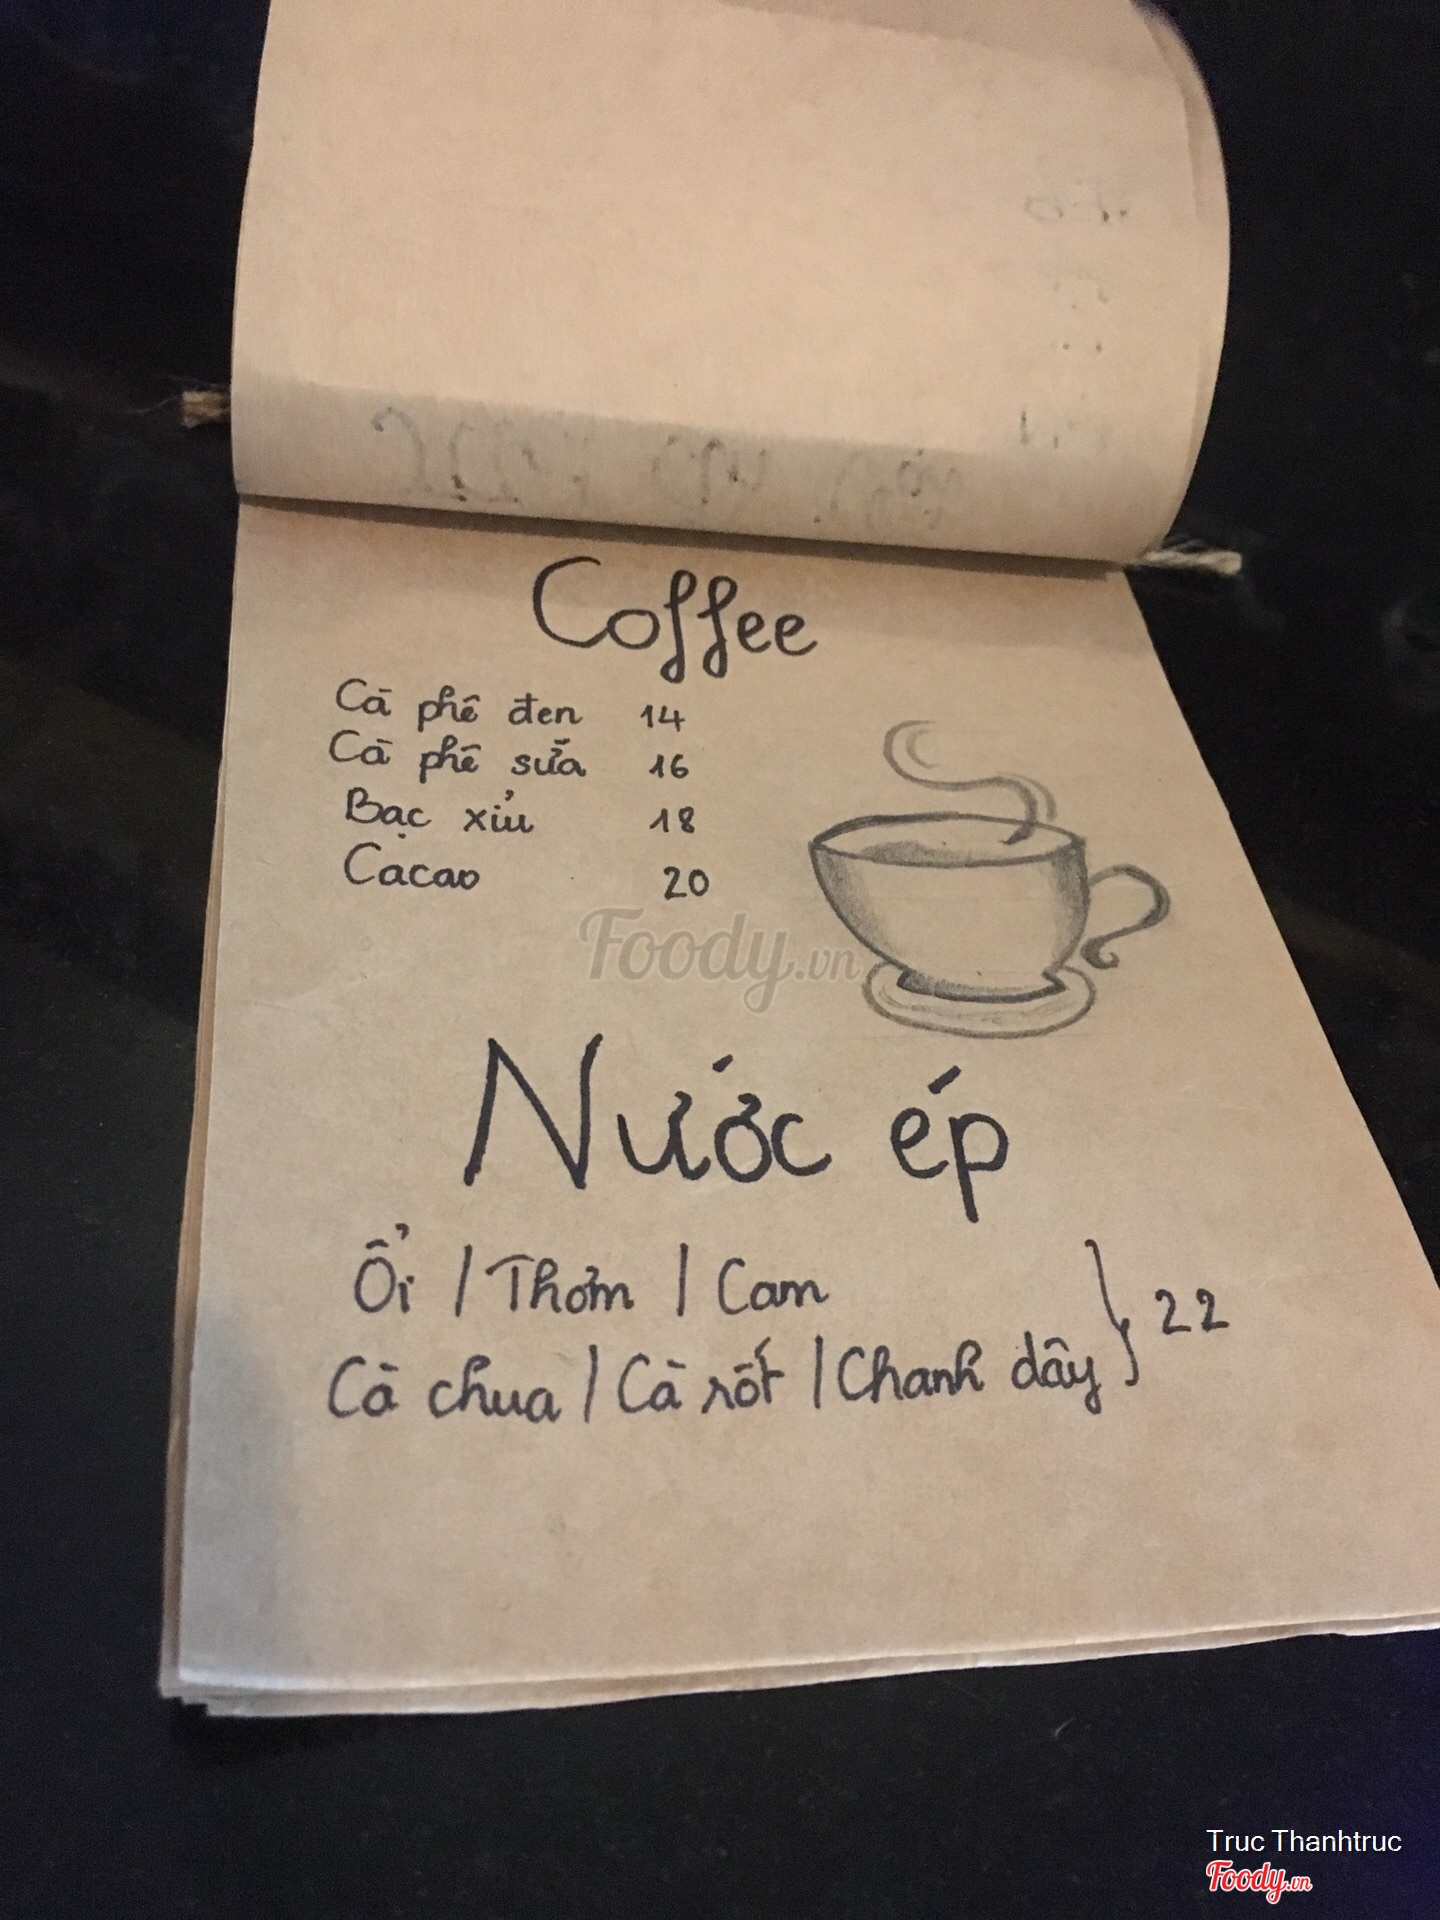 Coffee
Cà phê đen 14
Cà phê sữa 16
Bạc xỉu 18
Cacao 20
Foody.vn
Nước ép
Ổi / Thơm / Cam
Cà chua / Cà rốt / Chanh dây } 22
Truc Thanhtruc
Foody.vn